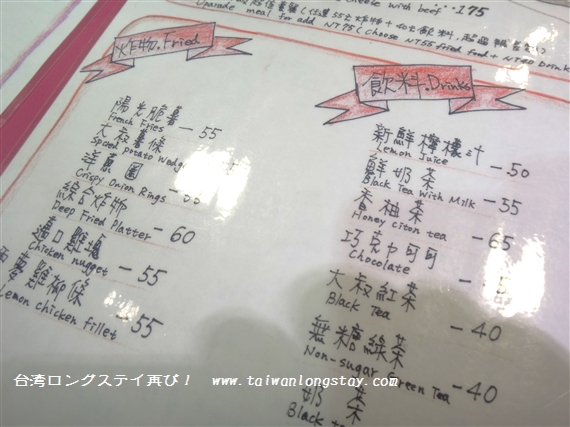 cheese with beef · 175
Upgrade meal for add NT75 (choose NT55 fried food + NT40 Drinks
炸物.Fried
陽光脆薯 - 55
French Fries
大叔薯條
Spiced Potato Wedg
洋蔥圈 - 55
Crispy Onion Rings
綜合炸物 - 60
Deep Fried Platter
適口雞塊 - 55
Chicken nugget
雞柳條 - 55
Lemon chicken fillet
飲料.Drinks
新鮮檸檬汁 - 50
Lemon Juice
鮮奶茶 - 55
Black Tea With Milk
香柚茶 - 65
Honey citon tea
巧克力可可
Chocolate
大叔紅茶 - 40
Black Tea
無糖綠茶 - 40
Non-sugar Green Tea
奶茶
Black tea
台湾ロングステイ再び! www.taiwanlongstay.com